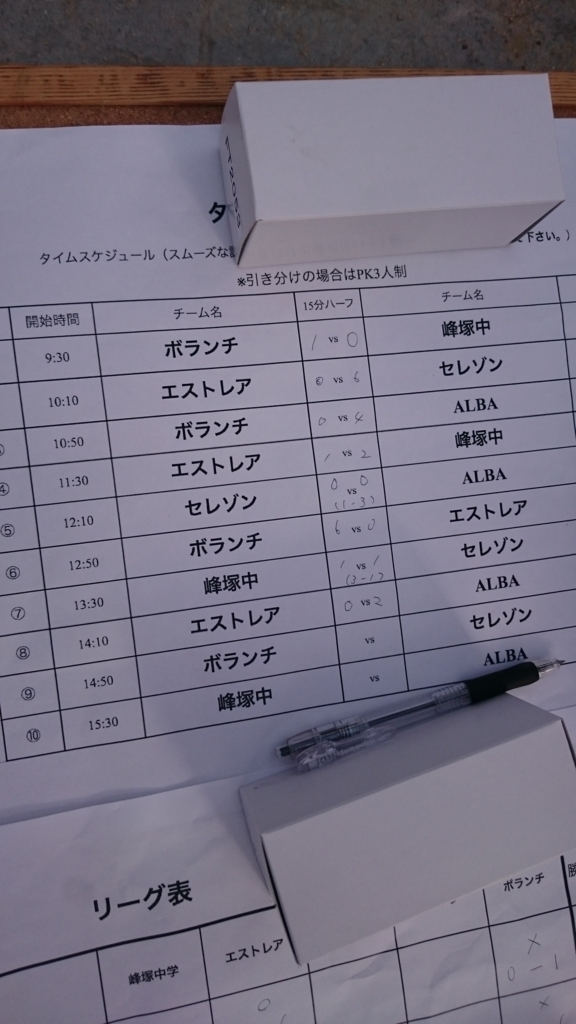 タ
タイムスケジュール（スムーズな
下さい。）
※引き分けの場合はPK3人制
開始時間 チーム名 15分ハーフ チーム名
9:30 ボランチ 1 vs 0 峰塚中
10:10 エストレア 0 vs 6 セレゾン
10:50 ボランチ 0 vs 4 ALBA
④ 11:30 エストレア 1 vs 2 峰塚中
⑤ 12:10 セレゾン 0 vs 0 (1-3) ALBA
⑥ 12:50 ボランチ 6 vs 0 エストレア
⑦ 13:30 峰塚中 1 vs 1 (3-1) セレゾン
⑧ 14:10 エストレア 0 vs 2 ALBA
⑨ 14:50 ボランチ vs セレゾン
⑩ 15:30 峰塚中 vs ALBA
リーグ表
峰塚中学 エストレア ボランチ 勝
○ ×
0-1
×